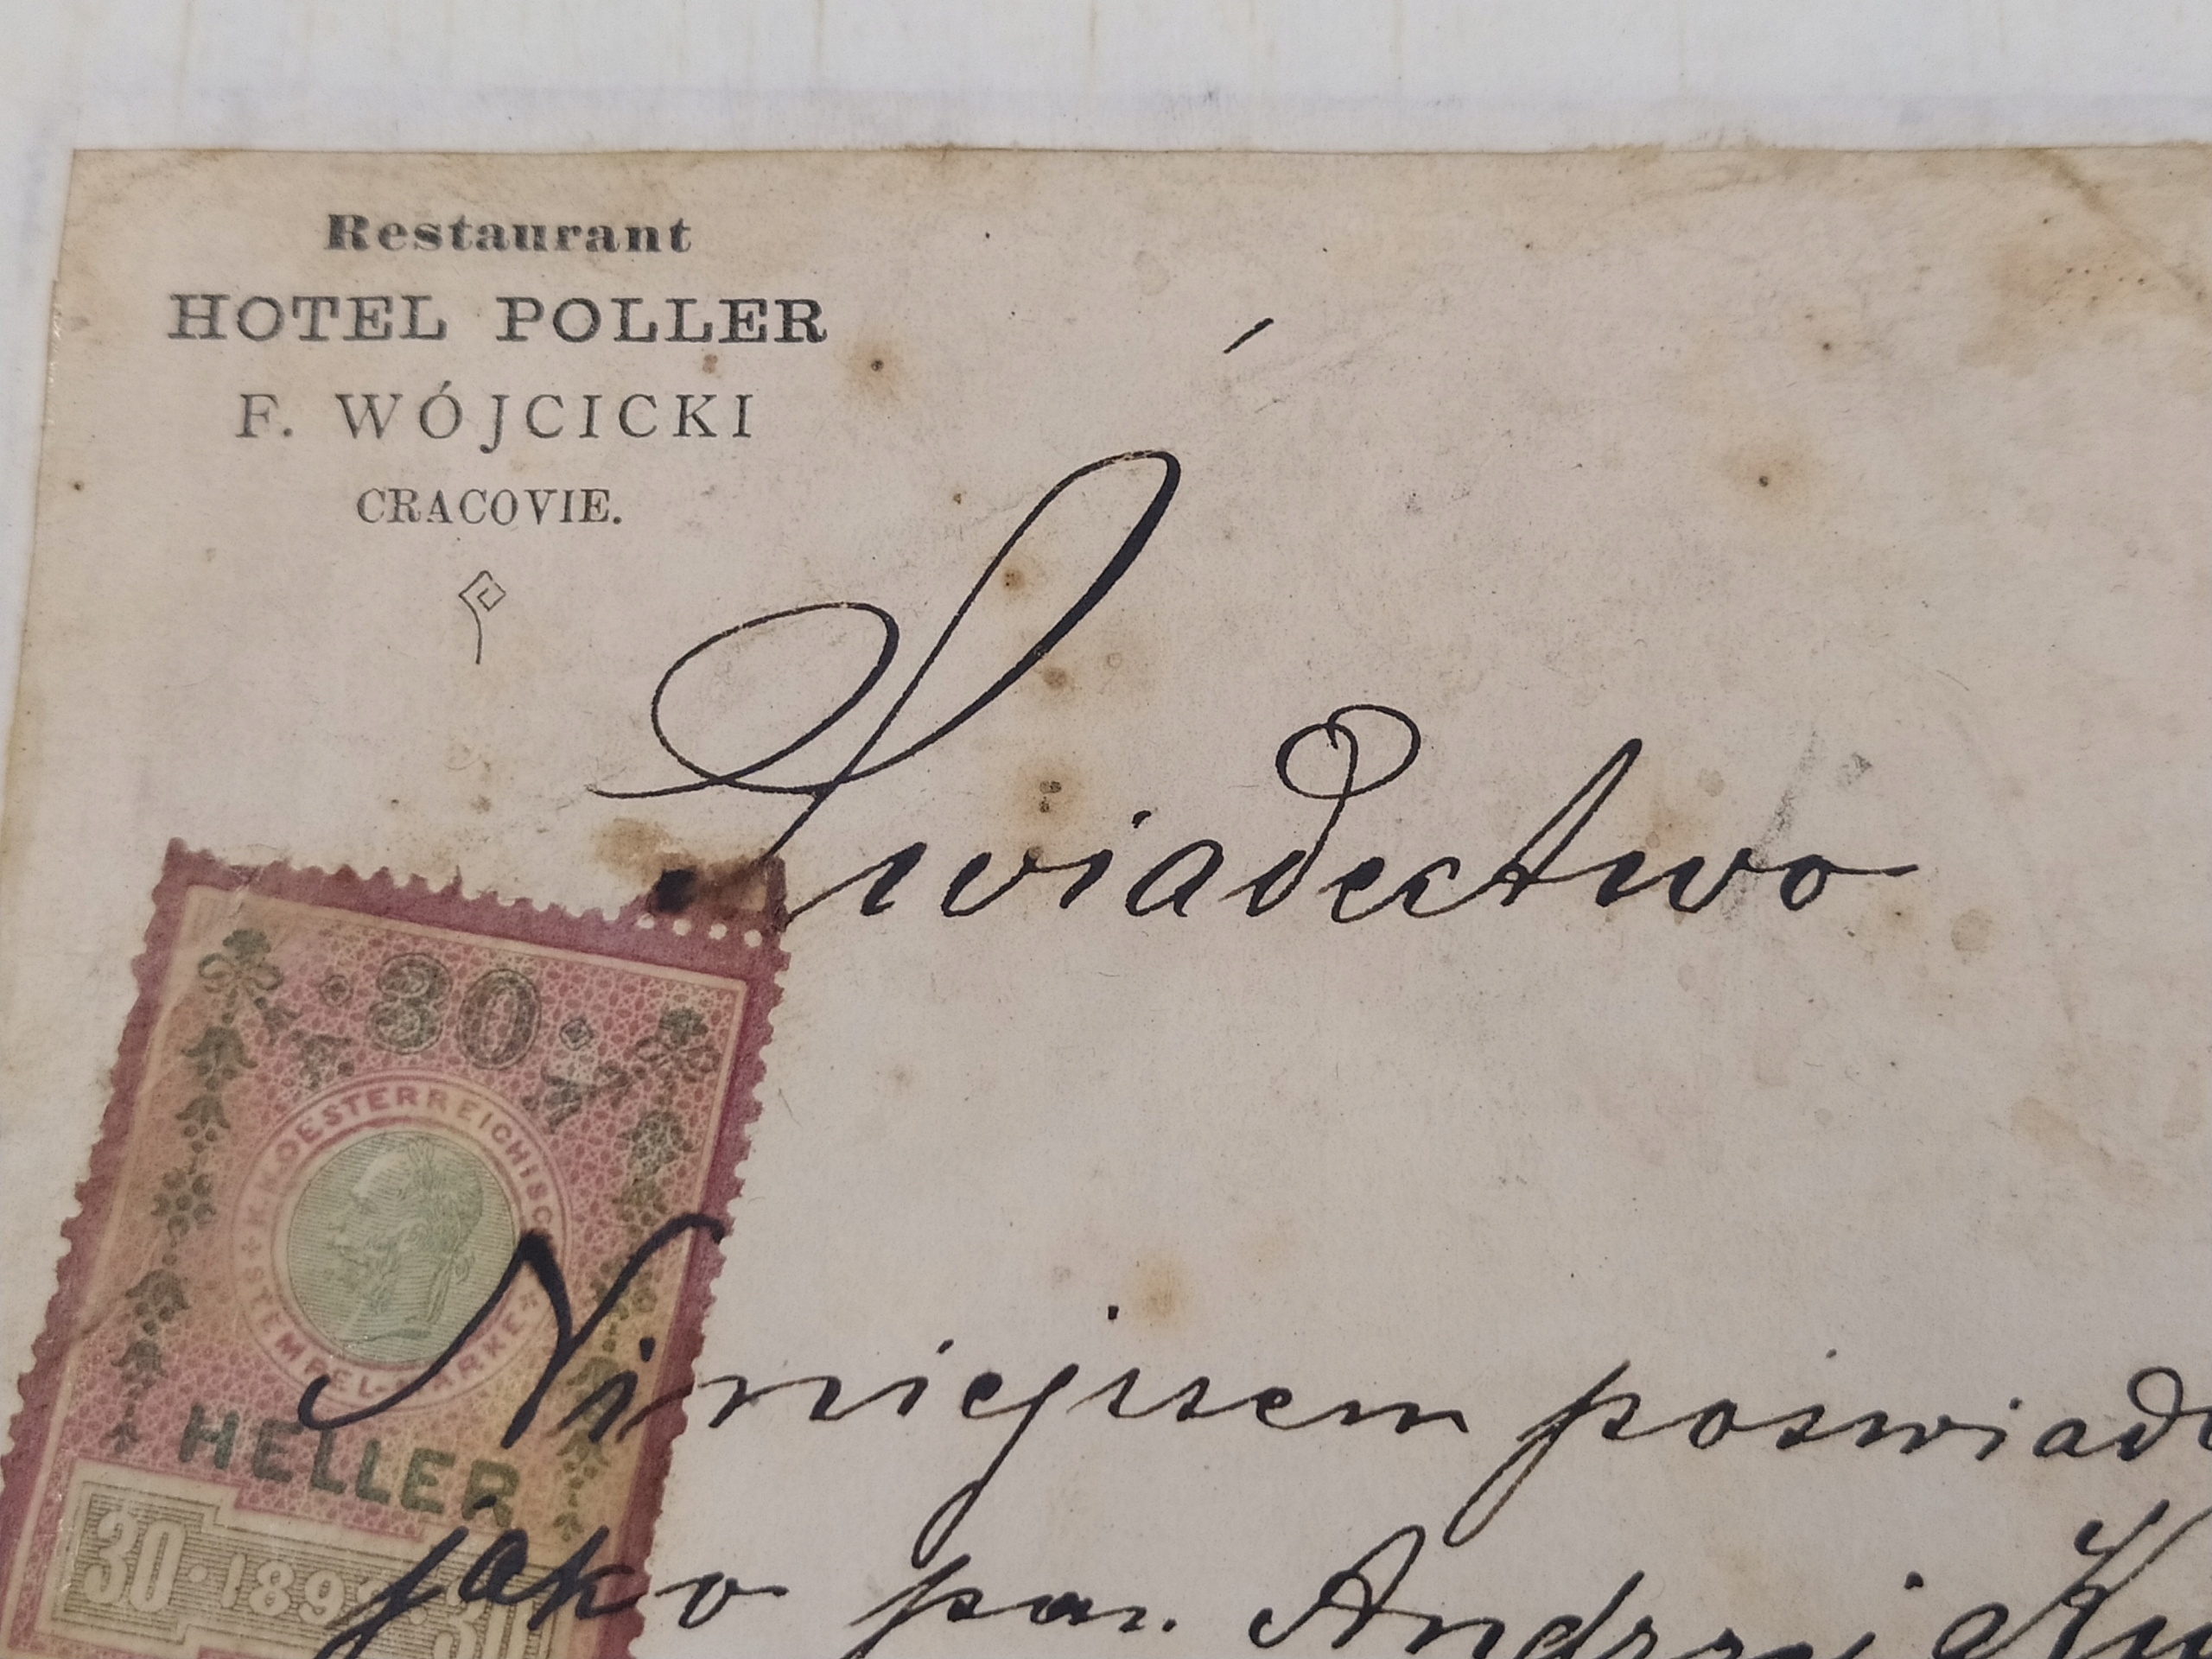 Restaurant
HOTEL POLLER
F. WÓJCICKI
CRACOVIE.
Świadectwo
· 30 ·
K.K. OESTERREICHISCHE STEMPEL-MARKE
HELLER
30 · 1898 · 30
Niniejszem poswiad
jako pan. Andrzej